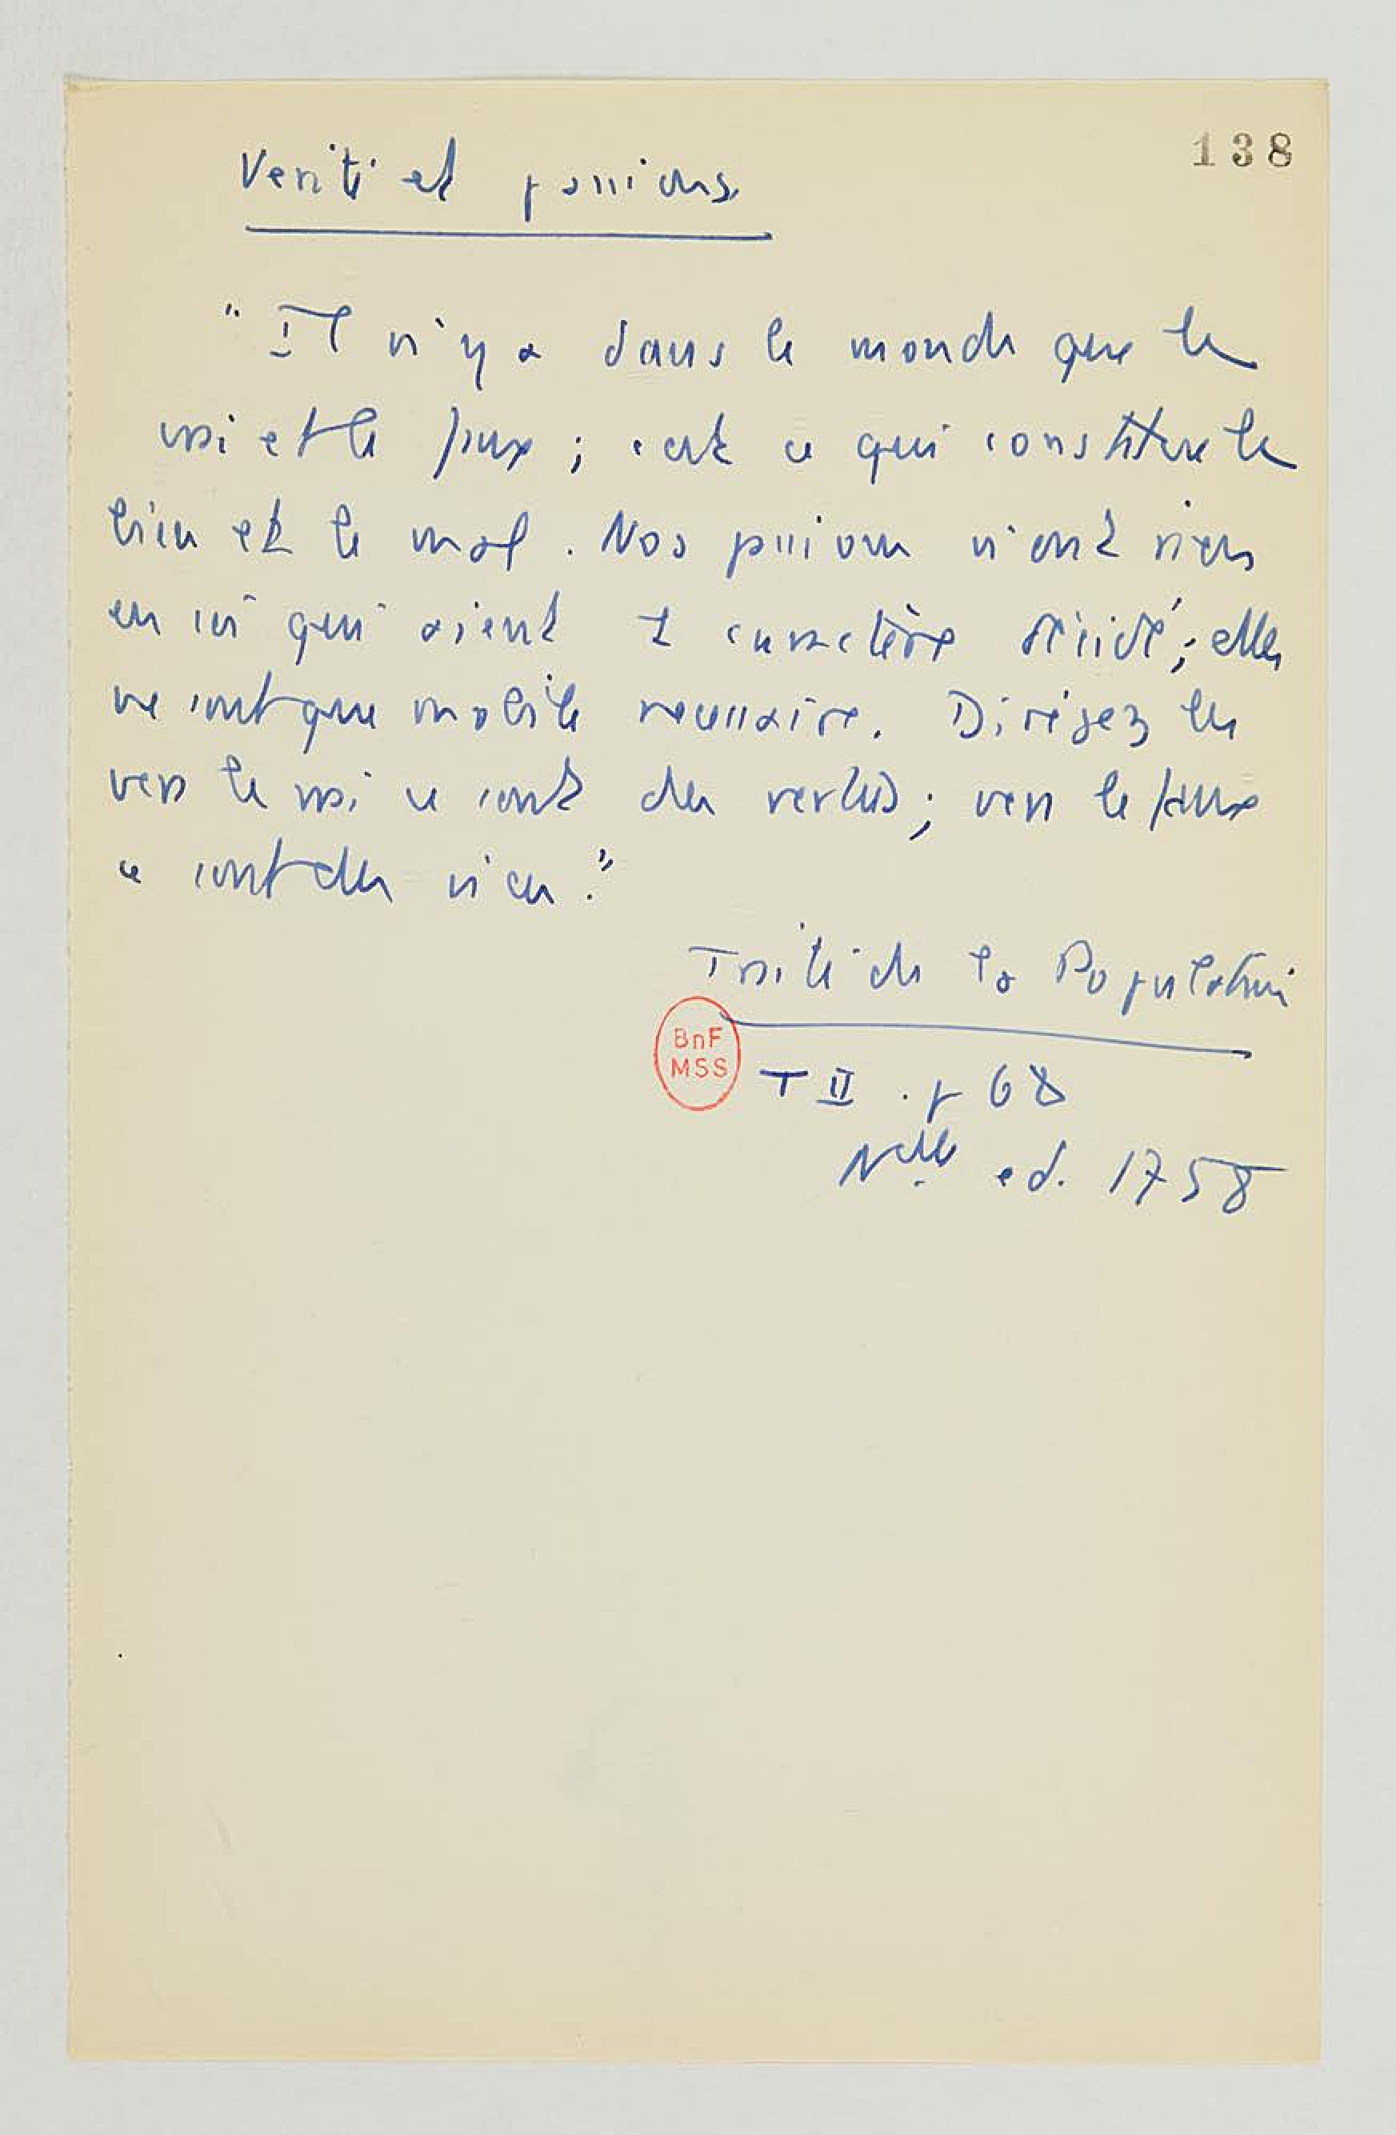 138
Verité et passions
"Il n'y a dans le monde que le
vrai et le faux ; c'est ce qui constitue le
bien et le mal. Nos passions n'ont rien
en soi qui aient ce caractère décidé ; elles
ne sont que mobile nécessaire. Dirigez les
vers le vrai ce sont des vertus ; vers le faux
ce sont des vices."
Traité de la Population
BnF
MSS
T II . p 68
Nelle ed. 1758